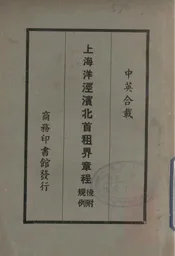 中英合裁
上海洋涇濱北首租界章程 後附規例
商務印書館發行